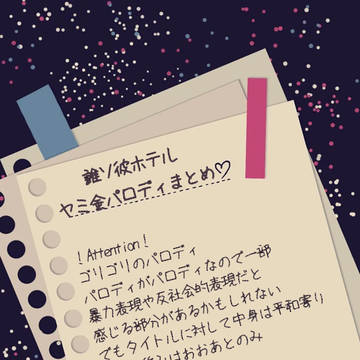 誰ソ彼ホテル
ヤミ金パロディまとめ♡
！Attention！
ゴリゴリのパロディ
パロディがパロディなので一部
暴力表現や反社会的表現だと
感じる部分があるかもしれない
でもタイトルに対して中身は平和寄り
はおおあとのみ